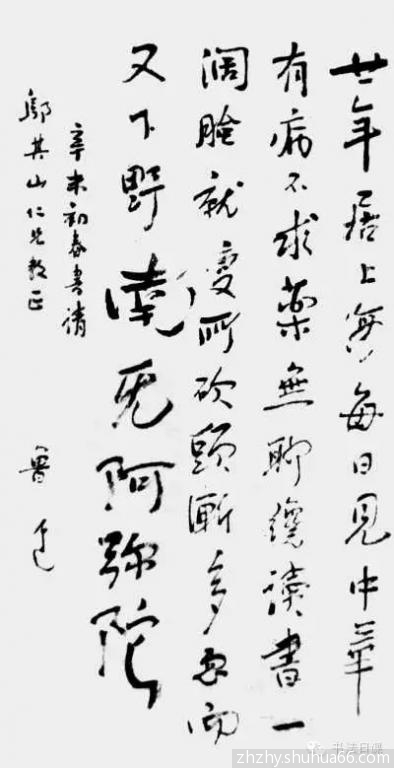 廿年居上海每日見中華
有病不求藥無聊纔讀書一
闊臉就變所砍頭漸多忽而
又下野南无阿弥陀
辛未初春書請
鄔其山仁兄教正
魯迅
书法日课
zhzhy.shuhua66.com